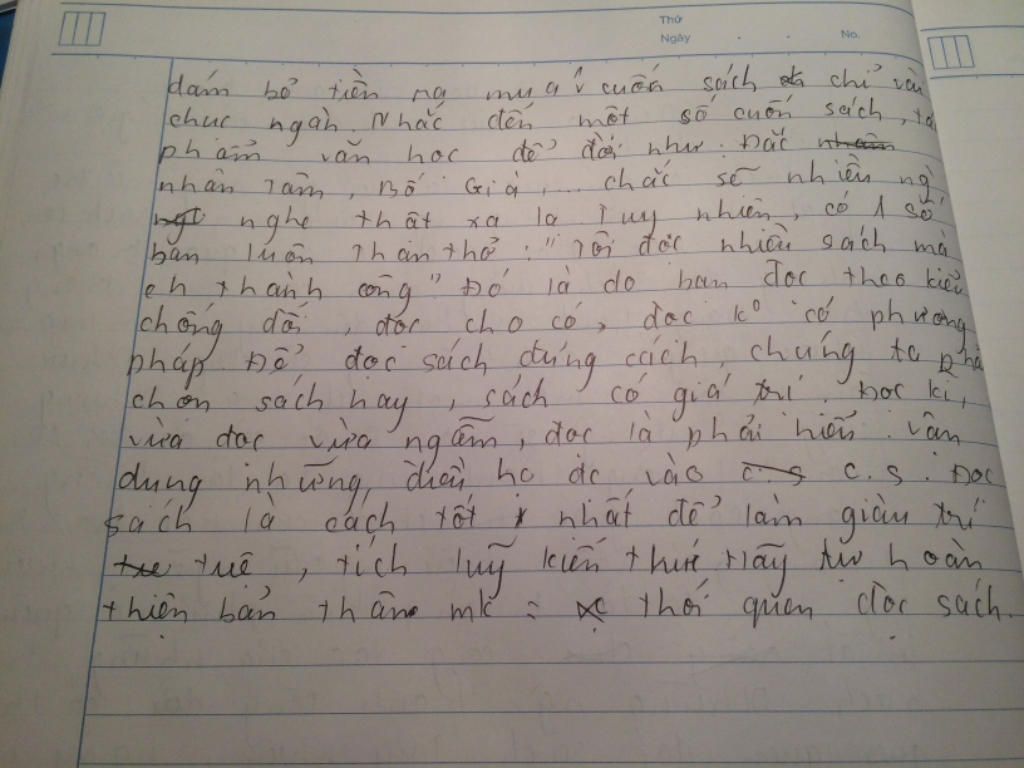 Thứ
Ngày . . No.
dám bỏ tiền ra mua cuốn sách chỉ vài
chục ngàn. Nhắc đến một số cuốn sách, tá
phẩm văn học để đời như: Đắc
nhân Tâm, Bố Già,... chắc sẽ nhiều ng
nghe thật xa lạ Tuy nhiên, có 1 số
bạn luôn Than thở: "Tôi đọc nhiều sách mà
ch thành công" Đó là do bạn đọc theo kiểu
chống đối, đọc cho có, đọc k° có phương
pháp Để đọc sách đúng cách, chúng ta phả
chọn sách hay, sách có giá trị. Đọc kĩ,
vừa đọc vừa ngẫm, đọc là phải hiểu. Vận
dụng những điều họ đc vào c.s. Đọc
sách là cách tốt nhất để làm giàu trí
tuệ, tích luỹ kiến thức Hãy tự hoàn
thiện bản thân mk = thói quen đọc sách.